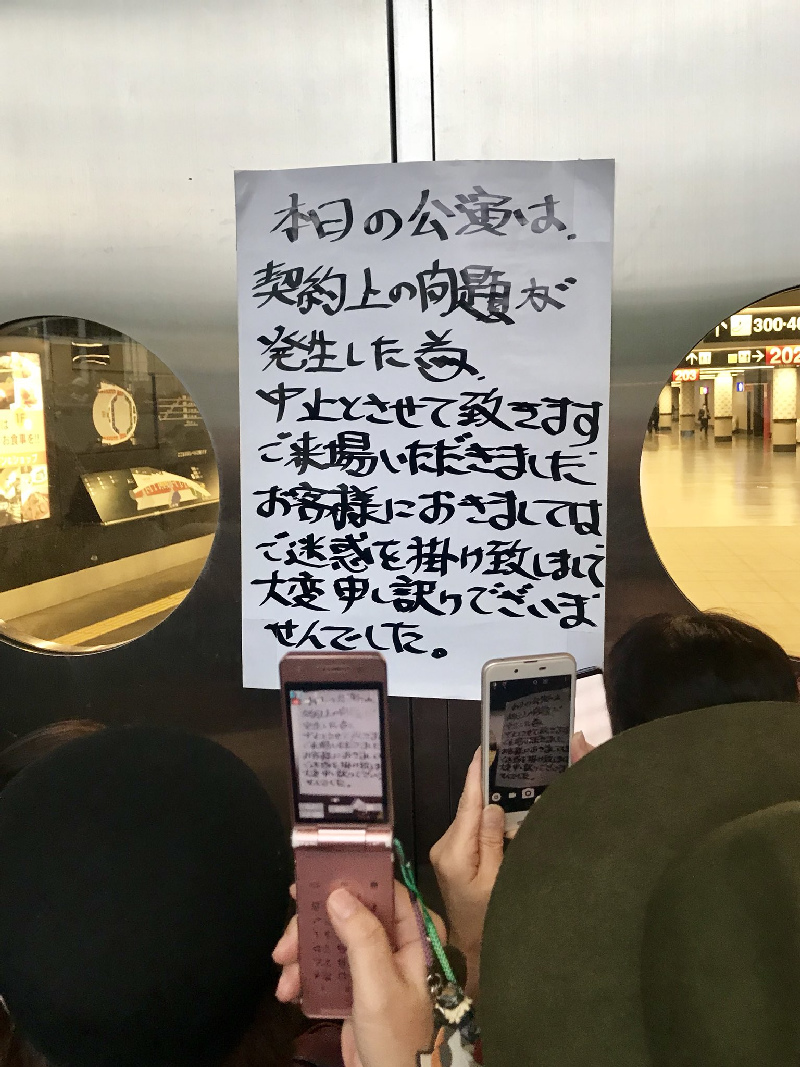 本日の公演は、
契約上の問題が
発生した為、
中止とさせて致きます
ご来場いただきました
お客様におきましては
ご迷惑を掛け致しまして
大変申し訳りでございま
せんでした。
お食事を!!
300-40
202
203